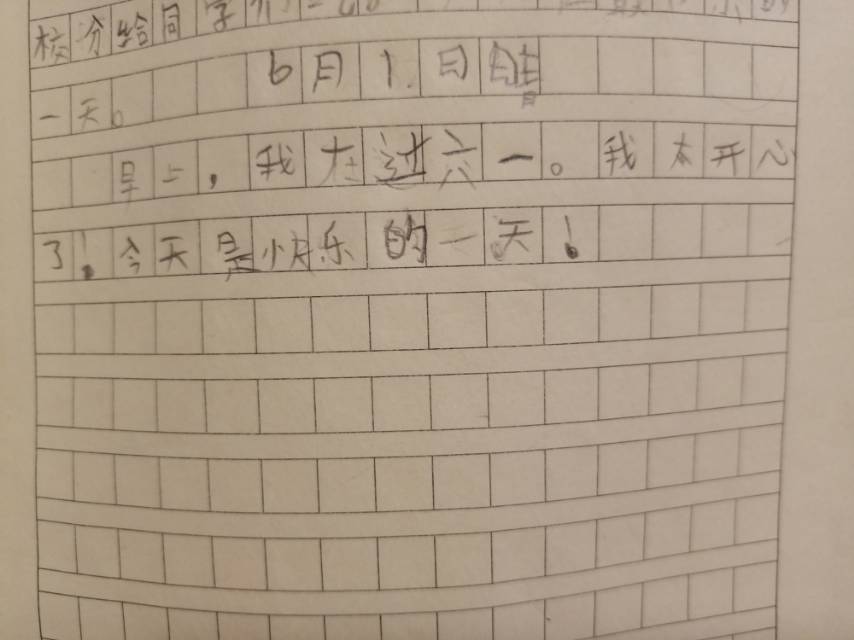 校分给同学们
一天。 6月1.日晴
早上，我在过六一。我太开心
了！今天是快乐的一天！